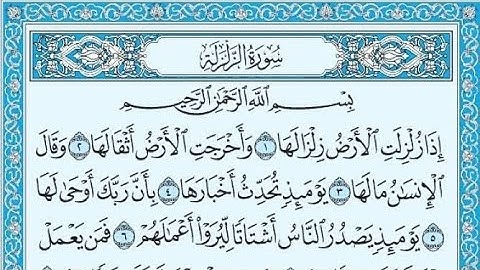 سُورَةُ الزَّلْزَلَةِ
بِسْمِ اللَّهِ الرَّحْمَٰنِ الرَّحِيمِ
إِذَا زُلْزِلَتِ الْأَرْضُ زِلْزَالَهَا ١ وَأَخْرَجَتِ الْأَرْضُ أَثْقَالَهَا ٢ وَقَالَ
الْإِنسَانُ مَا لَهَا ٣ يَوْمَئِذٍ تُحَدِّثُ أَخْبَارَهَا ٤ بِأَنَّ رَبَّكَ أَوْحَىٰ لَهَا
٥ يَوْمَئِذٍ يَصْدُرُ النَّاسُ أَشْتَاتًا لِّيُرَوْا أَعْمَالَهُمْ ٦ فَمَن يَعْمَلْ